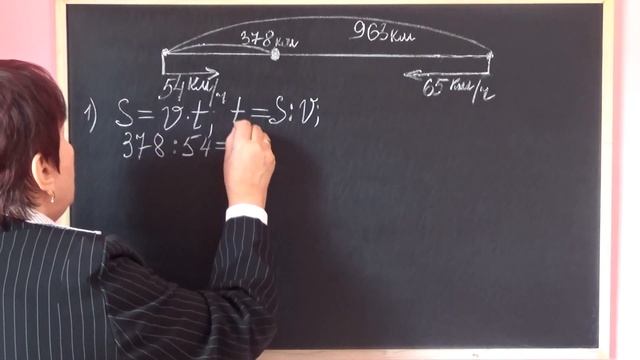 963 км
378 км
54 км/ч
65 км/ч
1) S = v·t; t = S:v;
378:54=